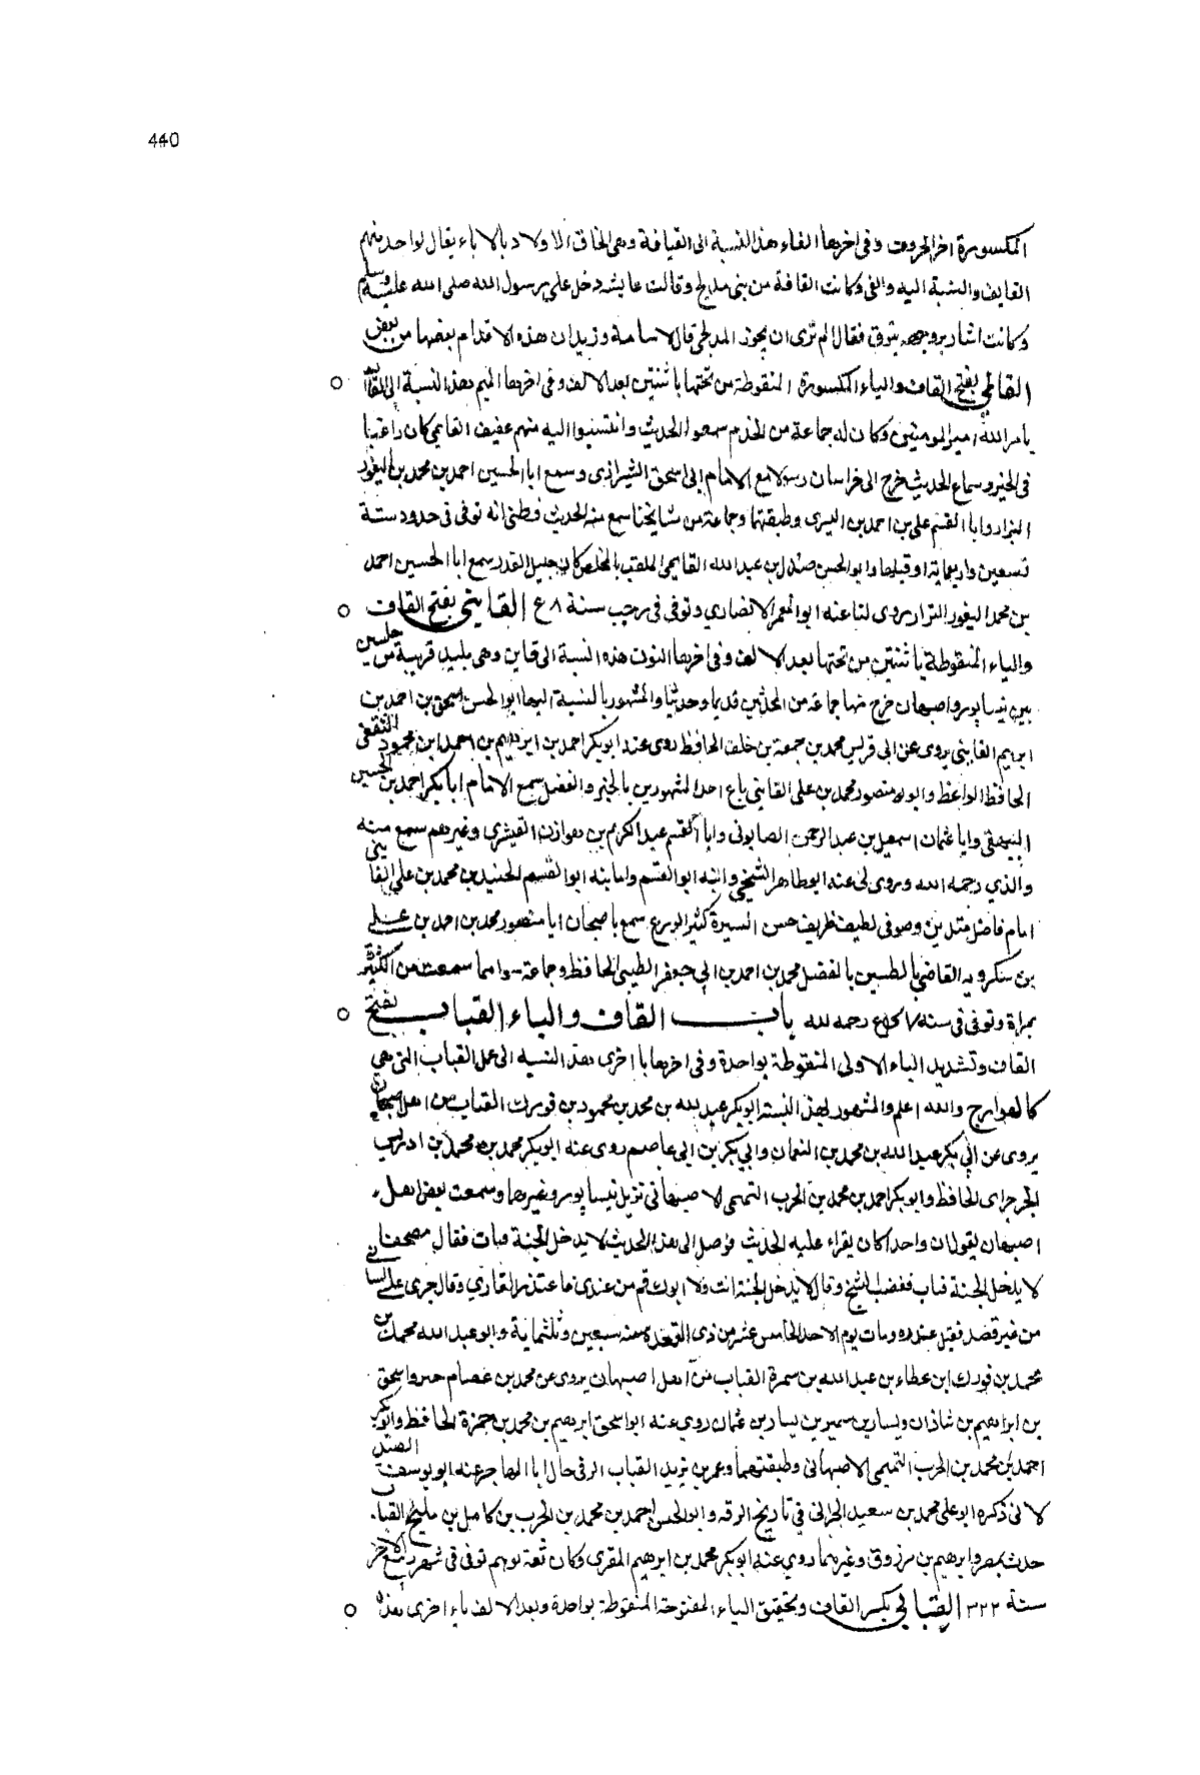 440
المكسورة اخر الحروف وفى اخرها الفاء هذه النسبة الى القيافة وهى الحاق الاولاد بالاباء يقال لواحد منهم
القايف والنسبة اليه والقى وكانت القافة من بنى مدلج وقالت عايشه دخل على رسول الله صلى الله عليه وسلم
وكانت اشار بروجهه يترق فقال الم ترى ان يجوز المدلجى قال لاسامة وزيد ان هذه الاقدام بعضها من بعض
القايمى بفتح القاف والياء المكسورة المنقوطة من تحتها باثنتين بعد الالف وفى اخرها الميم هذه النسبة الى القايم
بامر الله امير المومنين وكان له جماعة من الخدم سمعوا الحديث وانتسبوا اليه منهم عفيف القايمى كان راغبا
فى الخير وسماع الحديث خرج الى خراسان رسولا مع الامام ابى اسحق الشيرازى وسمع ابا الحسين احمد بن محمد بن النقور
البزار وابا القسم على بن احمد بن البسرى وطبقتهما وجماعة من مشايخنا سمع منه الحديث وظنى انه توفى فى حدود سنة
تسعين واربعماية او قبلها وابو الحسن صندل بن عبد الله القايمى الملقب بالمخلص كان جليل القدر سمع ابا الحسين احمد
بن محمد النقور البزار روى لنا عنه ابو المعمر الانصاري وتوفى فى رجب سنة القاينى بفتح القاف
والياء المنقوطة باثنتين من تحتها بعد الالف وفى اخرها النون هذه النسبة الى قاين وهى بليد قريبة من طبسين
بين نيسابور واصبهان خرج منها جماعة من المحدثين قديما وحديثا والمشهور بالنسبة اليها ابو الحسن اسحق بن احمد بن
ابرهيم القاينى يروى عن ابى قريس محمد بن جمعة بن خلف الحافظ روى عنه ابو بكر احمد بن ابرهيم بن احمد بن محمود الثقفى
الحافظ الواعظ وابو منصور محمد بن على القاينى باع احد المشهورين بالخير والفضل سمع الامام ابا بكر احمد بن الحسين
البيهقى وابا عثمان اسمعيل بن عبد الرحمن الصابونى وابا القسم عبد الكريم بن هوازن القشيرى وغيرهم سمع منه
والذي رحمه الله وروى لى عنه ابو طاهر السنجى وابنه ابو القسم واما ابنه ابو القسم الجنيد بن محمد بن على القاينى
امام فاضل متدين وصوفى لطيف ظريف حسن السيرة كثير الورع سمع باصبهان ابا منصور محمد بن احمد بن على
بن شكرويه القاضى بالطبسين بالفضل محمد بن احمد بن ابى جعفر الطبسى الحافظ وجماعة سواهما سمعت من الكثير
بهراة وتوفى فى سنة رحمه لله باب القاف والباء القباب بفتح
القاف وتشديد الباء الاولى المنقوطة بواحدة وفى اخرها با اخرى هذه النسبه الى عمل القباب التى هى
كالهوادج والله اعلم والمشهور بهذه النسبة ابو بكر عبد الله بن محمد بن محمود بن فورك القباب من اهل اصبهان
يروى عن ابى بكر عبد الله بن محمد بن النعمان وابى بكر بن ابى عاصم روى عنه ابو بكر محمد بن محمد بن ادريس
الجرجراى الحافظ وابو بكر احمد بن محمد بن الحرب التميمى الاصبهانى نزيل نيسابور وغيرهما وسمعت بعض اهل
اصبهان يقول ان واحدا كان يقراء عليه الحديث فوصل الى هذا الحديث لا يدخل الجنة قتات فقال مصحفا
لا يدخل الجنة قباب فغضب الشيخ وقال لا يدخل الجنة انت ولا ابوك قم من عندى فاعتذر القاري وقال جرى على لسانى
من غير قصد فقبل عذره ومات يوم الاحد الخامس عشر من ذى القعده سنه سبعين وثلثماية وابو عبد الله محمد بن
محمد بن فورك ابن عطاء بن عبد الله بن سمرة القباب من اهل اصبهان يروى عن محمد بن عصام جبر واسحق
بن ابراهيم بن شاذان ويسار بن سمير بن يسار بن عثمان روي عنه ابو اسحق ابرهيم بن محمد بن حمزة الحافظ وابو بكر
احمد بن محمد بن الحرب التميمى الاصبهانى وطبقتهما وعمر بن يزيد القباب الرقى خال ابا المهاجر عنه ابو يوسف الصيد
لانى ذكره ابو على محمد بن سعيد الحرانى فى تاريخ الرقه وابو الحسن احمد بن محمد بن الحرب بن كامل بن مليح القباب
حدث بمصر وابرهيم بن مرزوق وغيرهما روي عنه ابو بكر محمد بن ابرهيم المقرى وكان ثقة يوهم توفى فى شهر ربيع الاخر
سنة ٣٢٢ القبابى بكسر القاف وتحقيق الباء المفتوحة المنقوطة بواحدة وبعد الالف باء اخرى هذه